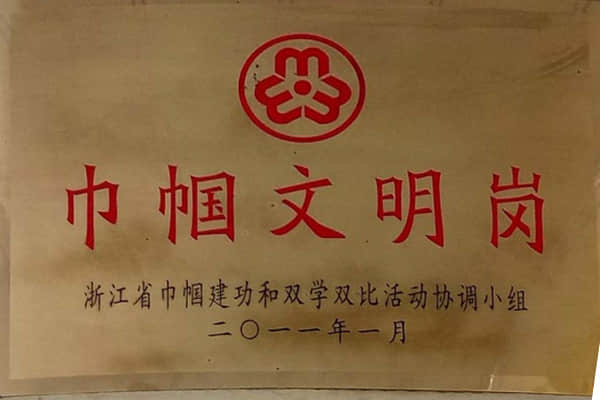 巾帼文明岗
浙江省巾帼建功和双学双比活动协调小组
二〇一一年一月